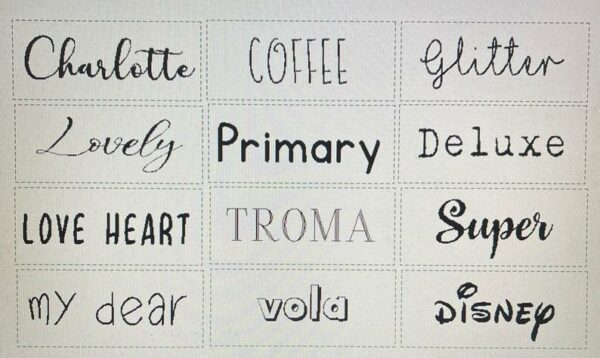 Charlotte COFFEE Glitter
Lovely Primary Deluxe
LOVE HEART TROMA Super
my dear vola DISNEY